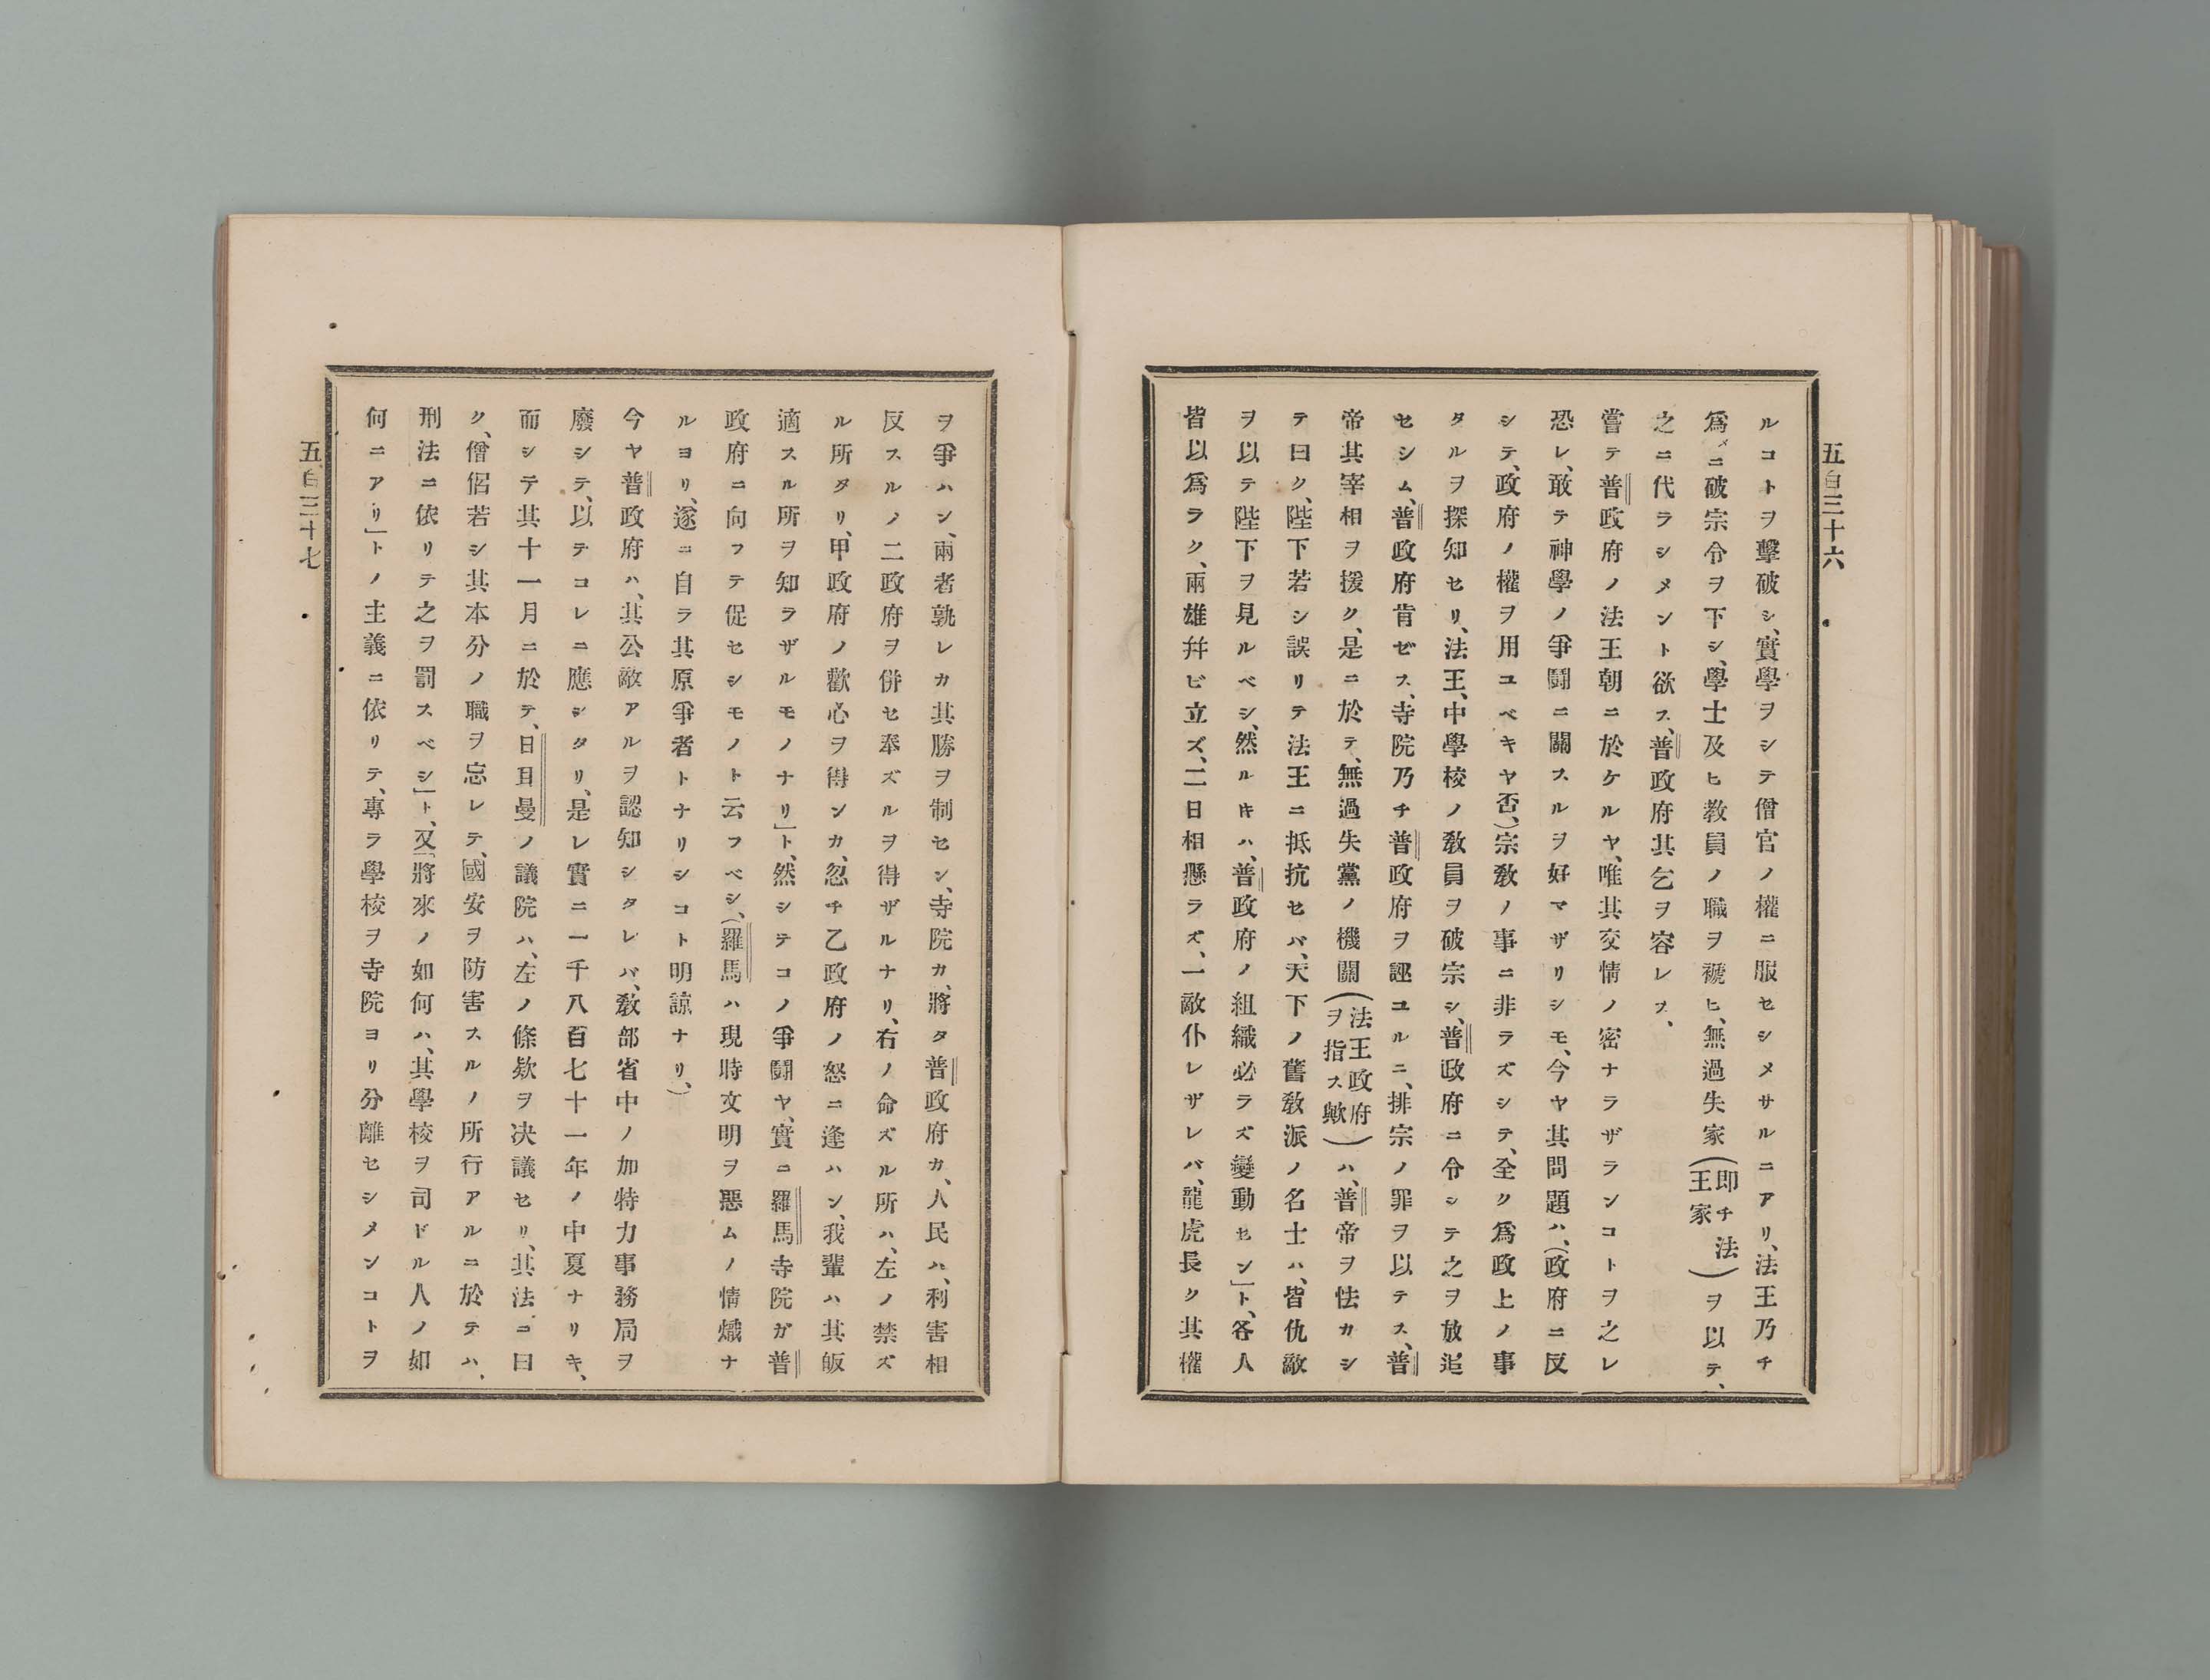 五百三十六
ルコトヲ擊破シ、實學ヲシテ僧官ノ權ニ服セシメサルニアリ、法王乃チ
爲メニ破宗令ヲ下シ、學士及ヒ敎員ノ職ヲ褫ヒ、無過失家(即チ法王家)ヲ以テ、
之ニ代ラシメント欲ス、普政府其乞ヲ容レス、
嘗テ普政府ノ法王朝ニ於ケルヤ、唯其交情ノ密ナラザランコトヲ之レ
恐レ、敢テ神學ノ爭鬪ニ關スルヲ好マザリシモ、今ヤ其問題ハ、(政府ニ反
シテ、政府ノ權ヲ用ユベキヤ否、)宗敎ノ事ニ非ラズシテ、全ク爲政上ノ事
タルヲ探知セリ、法王、中學校ノ敎員ヲ破宗シ、普政府ニ令シテ之ヲ放逐
セシム、普政府肯ゼス、寺院乃チ普政府ヲ誣ユルニ、排宗ノ罪ヲ以テス、普
帝其宰相ヲ援ク、是ニ於テ、無過失黨ノ機關(法王政府ヲ指ス歟)ハ、普帝ヲ怯カシ
テ曰ク、陛下若シ誤リテ法王ニ抵抗セバ、天下ノ舊敎派ノ名士ハ、皆仇敵
ヲ以テ陛下ヲ見ルベシ、然ルキハ、普政府ノ組織必ラズ變動セン」ト、各人
皆以爲ラク、兩雄幷ビ立ズ、二日相懸ラズ、一敵仆レザレバ、龍虎長ク其權
ヲ爭ハン、兩者孰レカ其勝ヲ制セン、寺院カ、將タ普政府カ、人民ハ、利害相
反スルノ二政府ヲ併セ奉ズルヲ得ザルナリ、右ノ命ズル所ハ、左ノ禁ズ
ル所タリ、甲政府ノ歡心ヲ得ンカ、忽チ乙政府ノ怒ニ逢ハン、我輩ハ其皈
適スル所ヲ知ラザルモノナリ」ト、然シテコノ爭鬪ヤ、實ニ羅馬寺院ガ普
政府ニ向フテ促セシモノト云フベシ、(羅馬ハ現時文明ヲ惡ムノ情熾ナ
ルヨリ、遂ニ自ラ其原爭者トナリシコト明諒ナリ、)
今ヤ普政府ハ、其公敵アルヲ認知シタレバ、敎部省中ノ加特力事務局ヲ
廢シテ、以テコレニ應シタリ、是レ實ニ一千八百七十一年ノ中夏ナリキ、
而シテ其十一月ニ於テ、日耳曼ノ議院ハ、左ノ條欵ヲ决議セリ、其法ニ曰
ク、僧侶若シ其本分ノ職ヲ忘レテ、國安ヲ防害スルノ所行アルニ於テハ、
刑法ニ依リテ之ヲ罰スベシ」ト、又「將來ノ如何ハ、其學校ヲ司ドル人ノ如
何ニアリ」トノ主義ニ依リテ、專ラ學校ヲ寺院ヨリ分離セシメンコトヲ
五百三十七